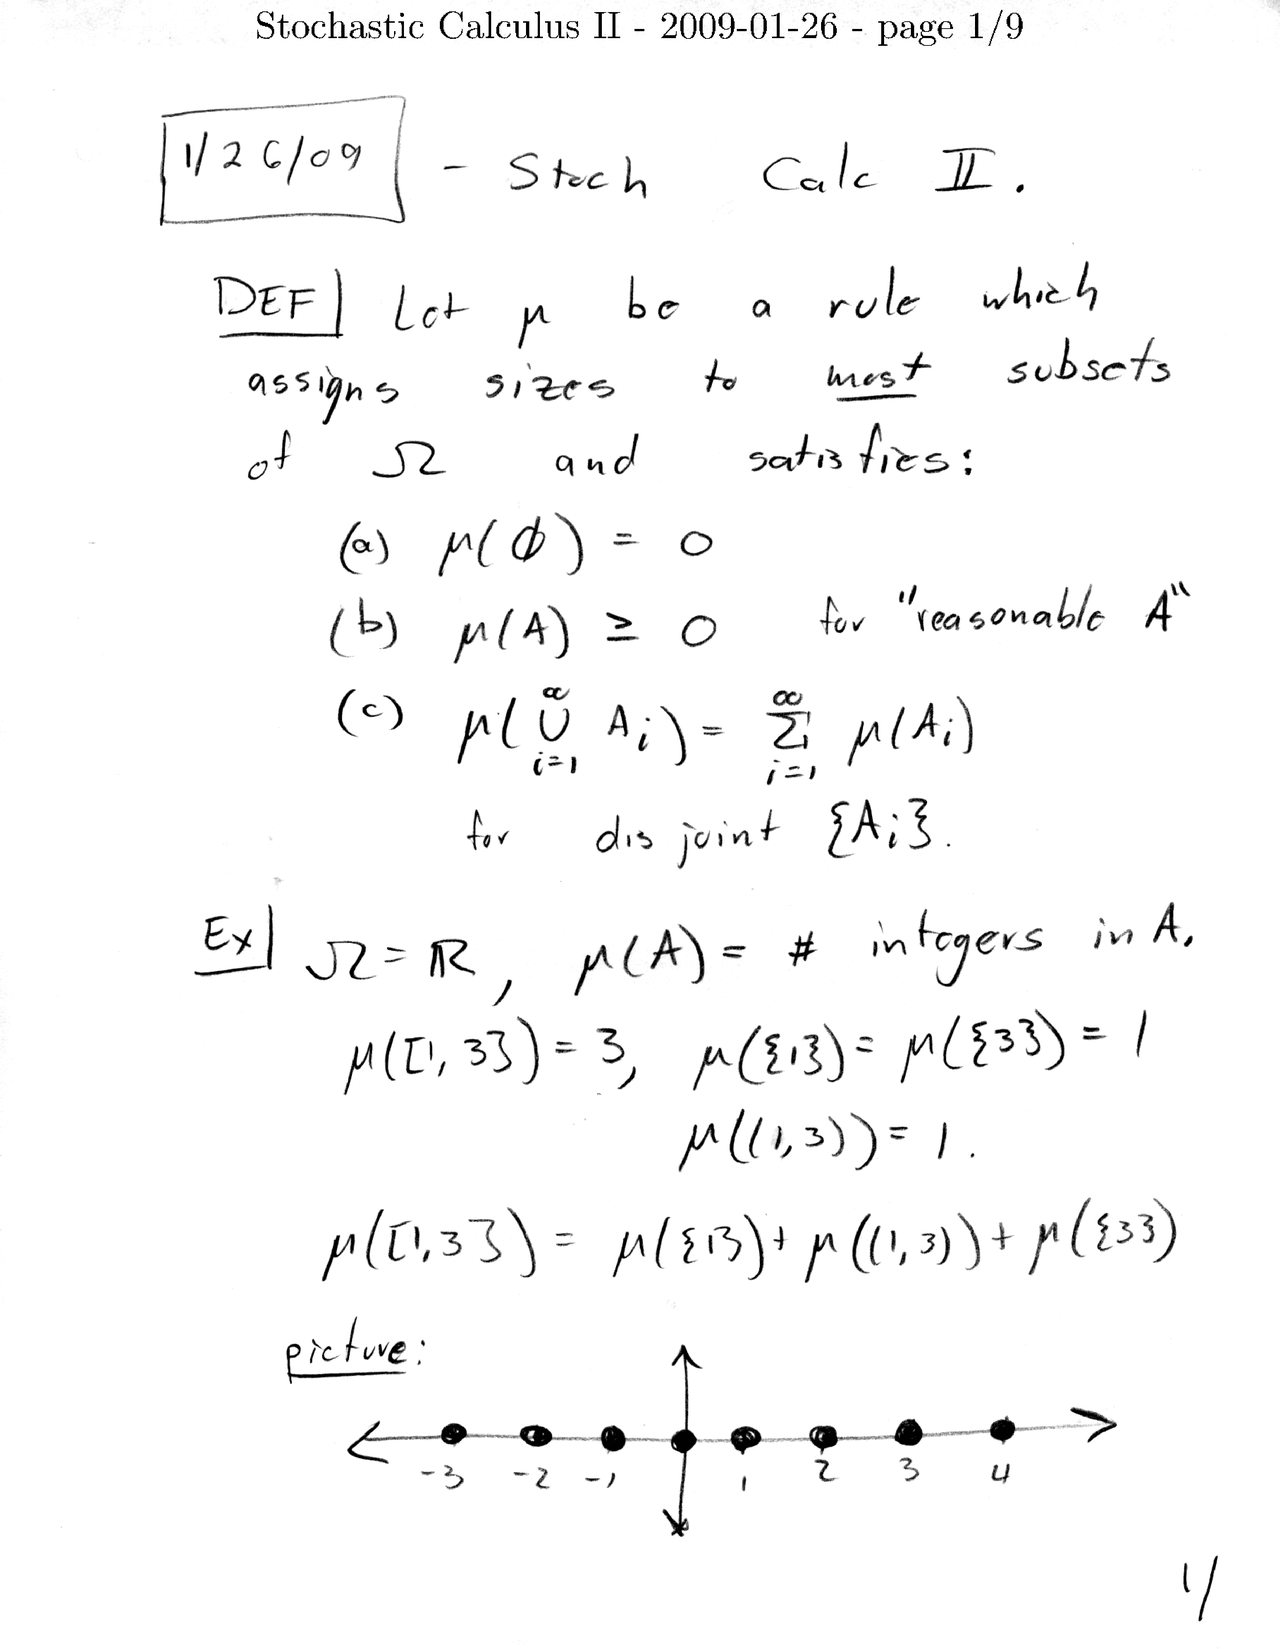 Stochastic Calculus II - 2009-01-26 - page 1/9
1/26/09 - Stoch Calc II.
DEF| Let μ be a rule which
assigns sizes to most subsets
of Ω and satisfies:
(a) μ(∅) = 0
(b) μ(A) ≥ 0 for "reasonable A"
(c) μ(∪_{i=1}^∞ A_i) = Σ_{i=1}^∞ μ(A_i)
for disjoint {A_i}.
Ex| Ω = ℝ, μ(A) = # integers in A.
μ([1, 3]) = 3, μ({1}) = μ({3}) = 1
μ((1,3)) = 1.
μ([1,3]) = μ({1}) + μ((1,3)) + μ({3})
picture:
-3 -2 -1 1 2 3 4
1/